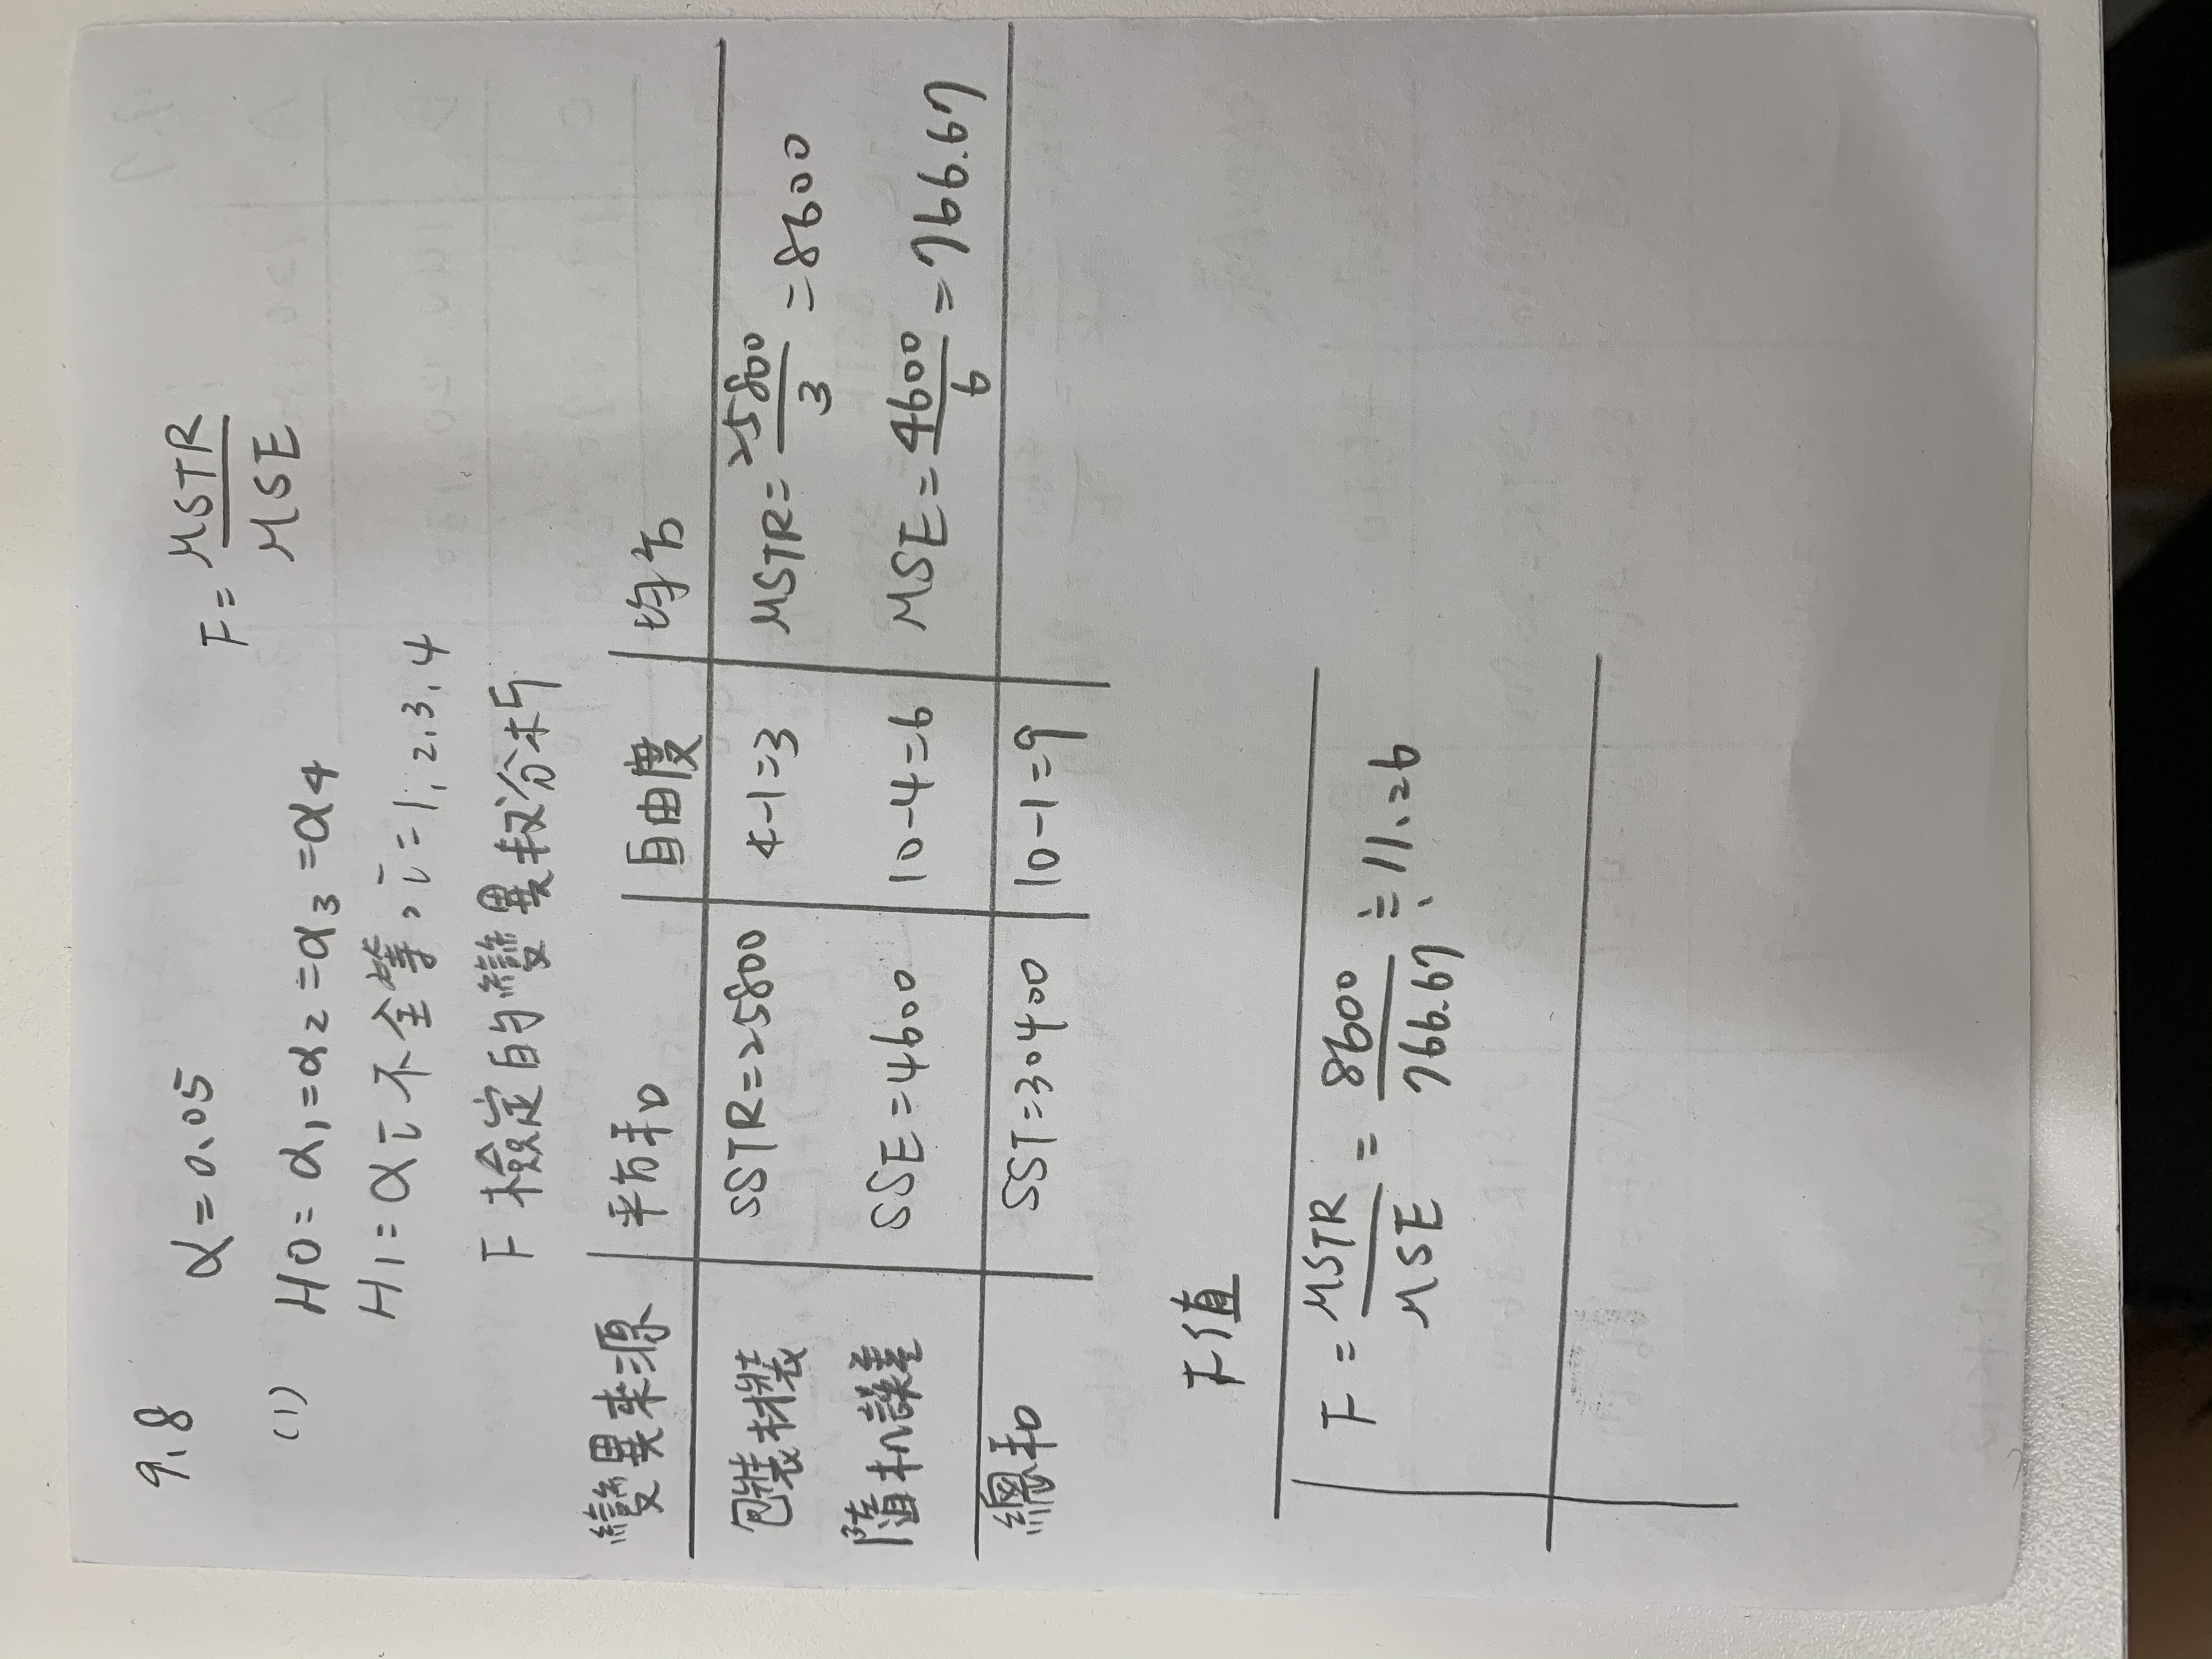 9.8
α=0.05
F=MSTR/MSE
(1) H0=α1=α2=α3=α4
H1=αi不全等,i=1,2,3,4
F檢定的變異数分析
變異來源 平方和 自由度 均方
包裝材裝 SSTR=25800 4-1=3 MSTR=25800/3=8600
隨机誤差 SSE=4600 10-4=6 MSE=4600/6=766.67
總和 SST=30400 10-1=9
F值
F=MSTR/MSE=8600/766.67≒11.26